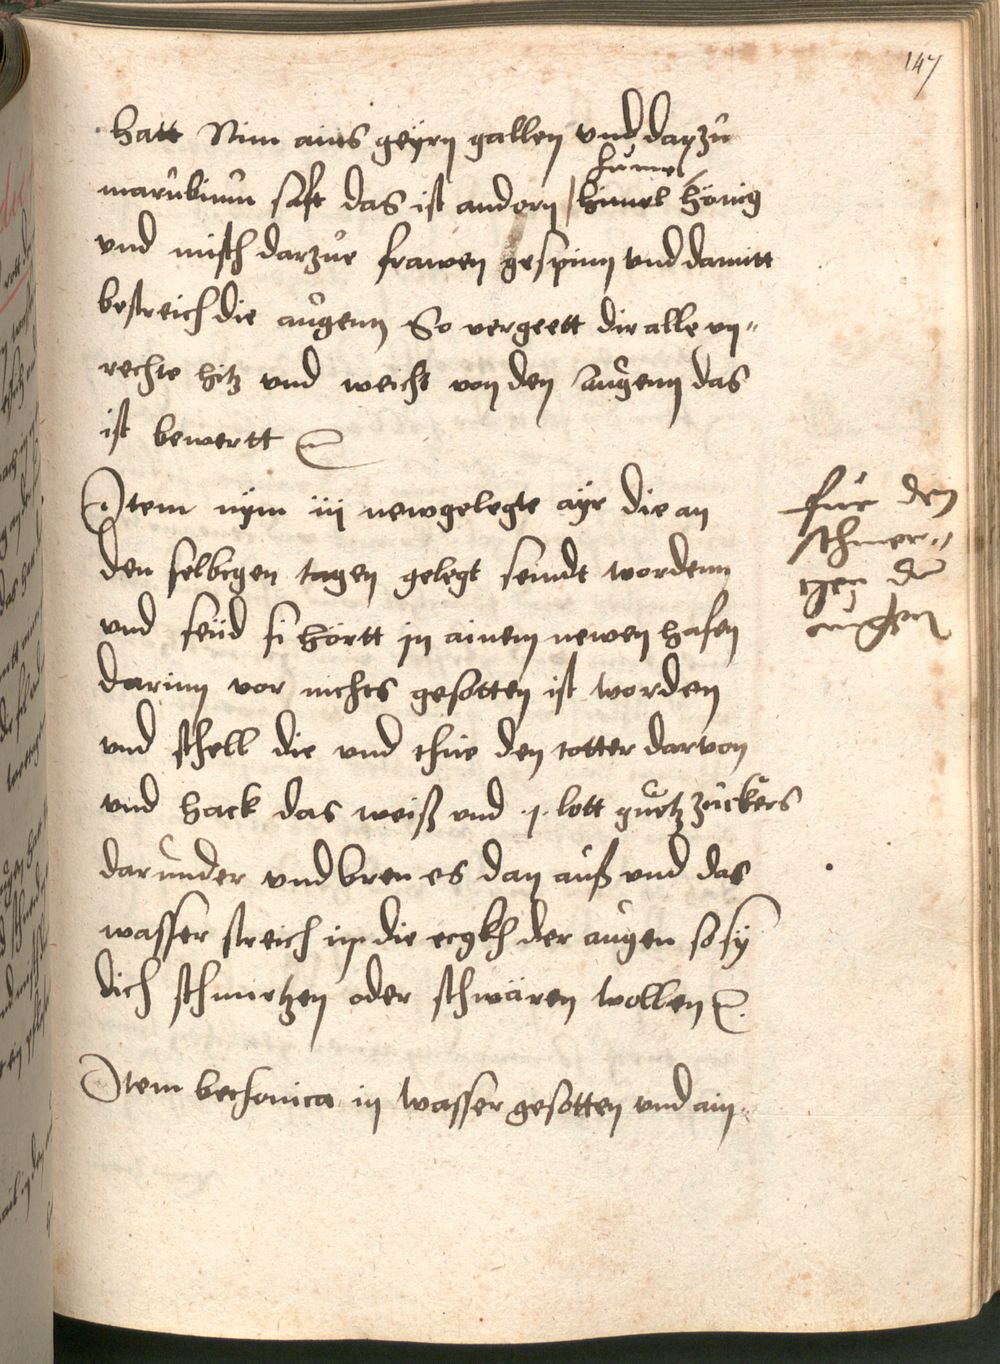 147
hatt Nim ains geyrn gallen vnd darzů
humel
marůbium safft das ist andorn / himel hönig
vnd misch darzůe frawen gespinn vnd damitt
bestreich die aůgenn So vergeett dir alle vn"
rechte hitz vnd weicht von den Aůgenn das
ist bewertt
Item nÿm iij newgelegte aÿr die an
den selbigen tagen gelegt seindt wordenn
vnd seüd si hörtt jn ainem newen hafen
darinn vor nichts gesotten ist worden
vnd schell die vnd thüe den totter darvon
vnd hack das weiß vnd .j. lott guetz zuckers
darůnder vnd bren es dan aůß vnd das
wasser streich jn die eckh der aůgen so sÿ
dich schmertzen oder schwären wollen
Item bethonica in wasser gesotten vnd ain
für den
schmer"
tzen der
augen